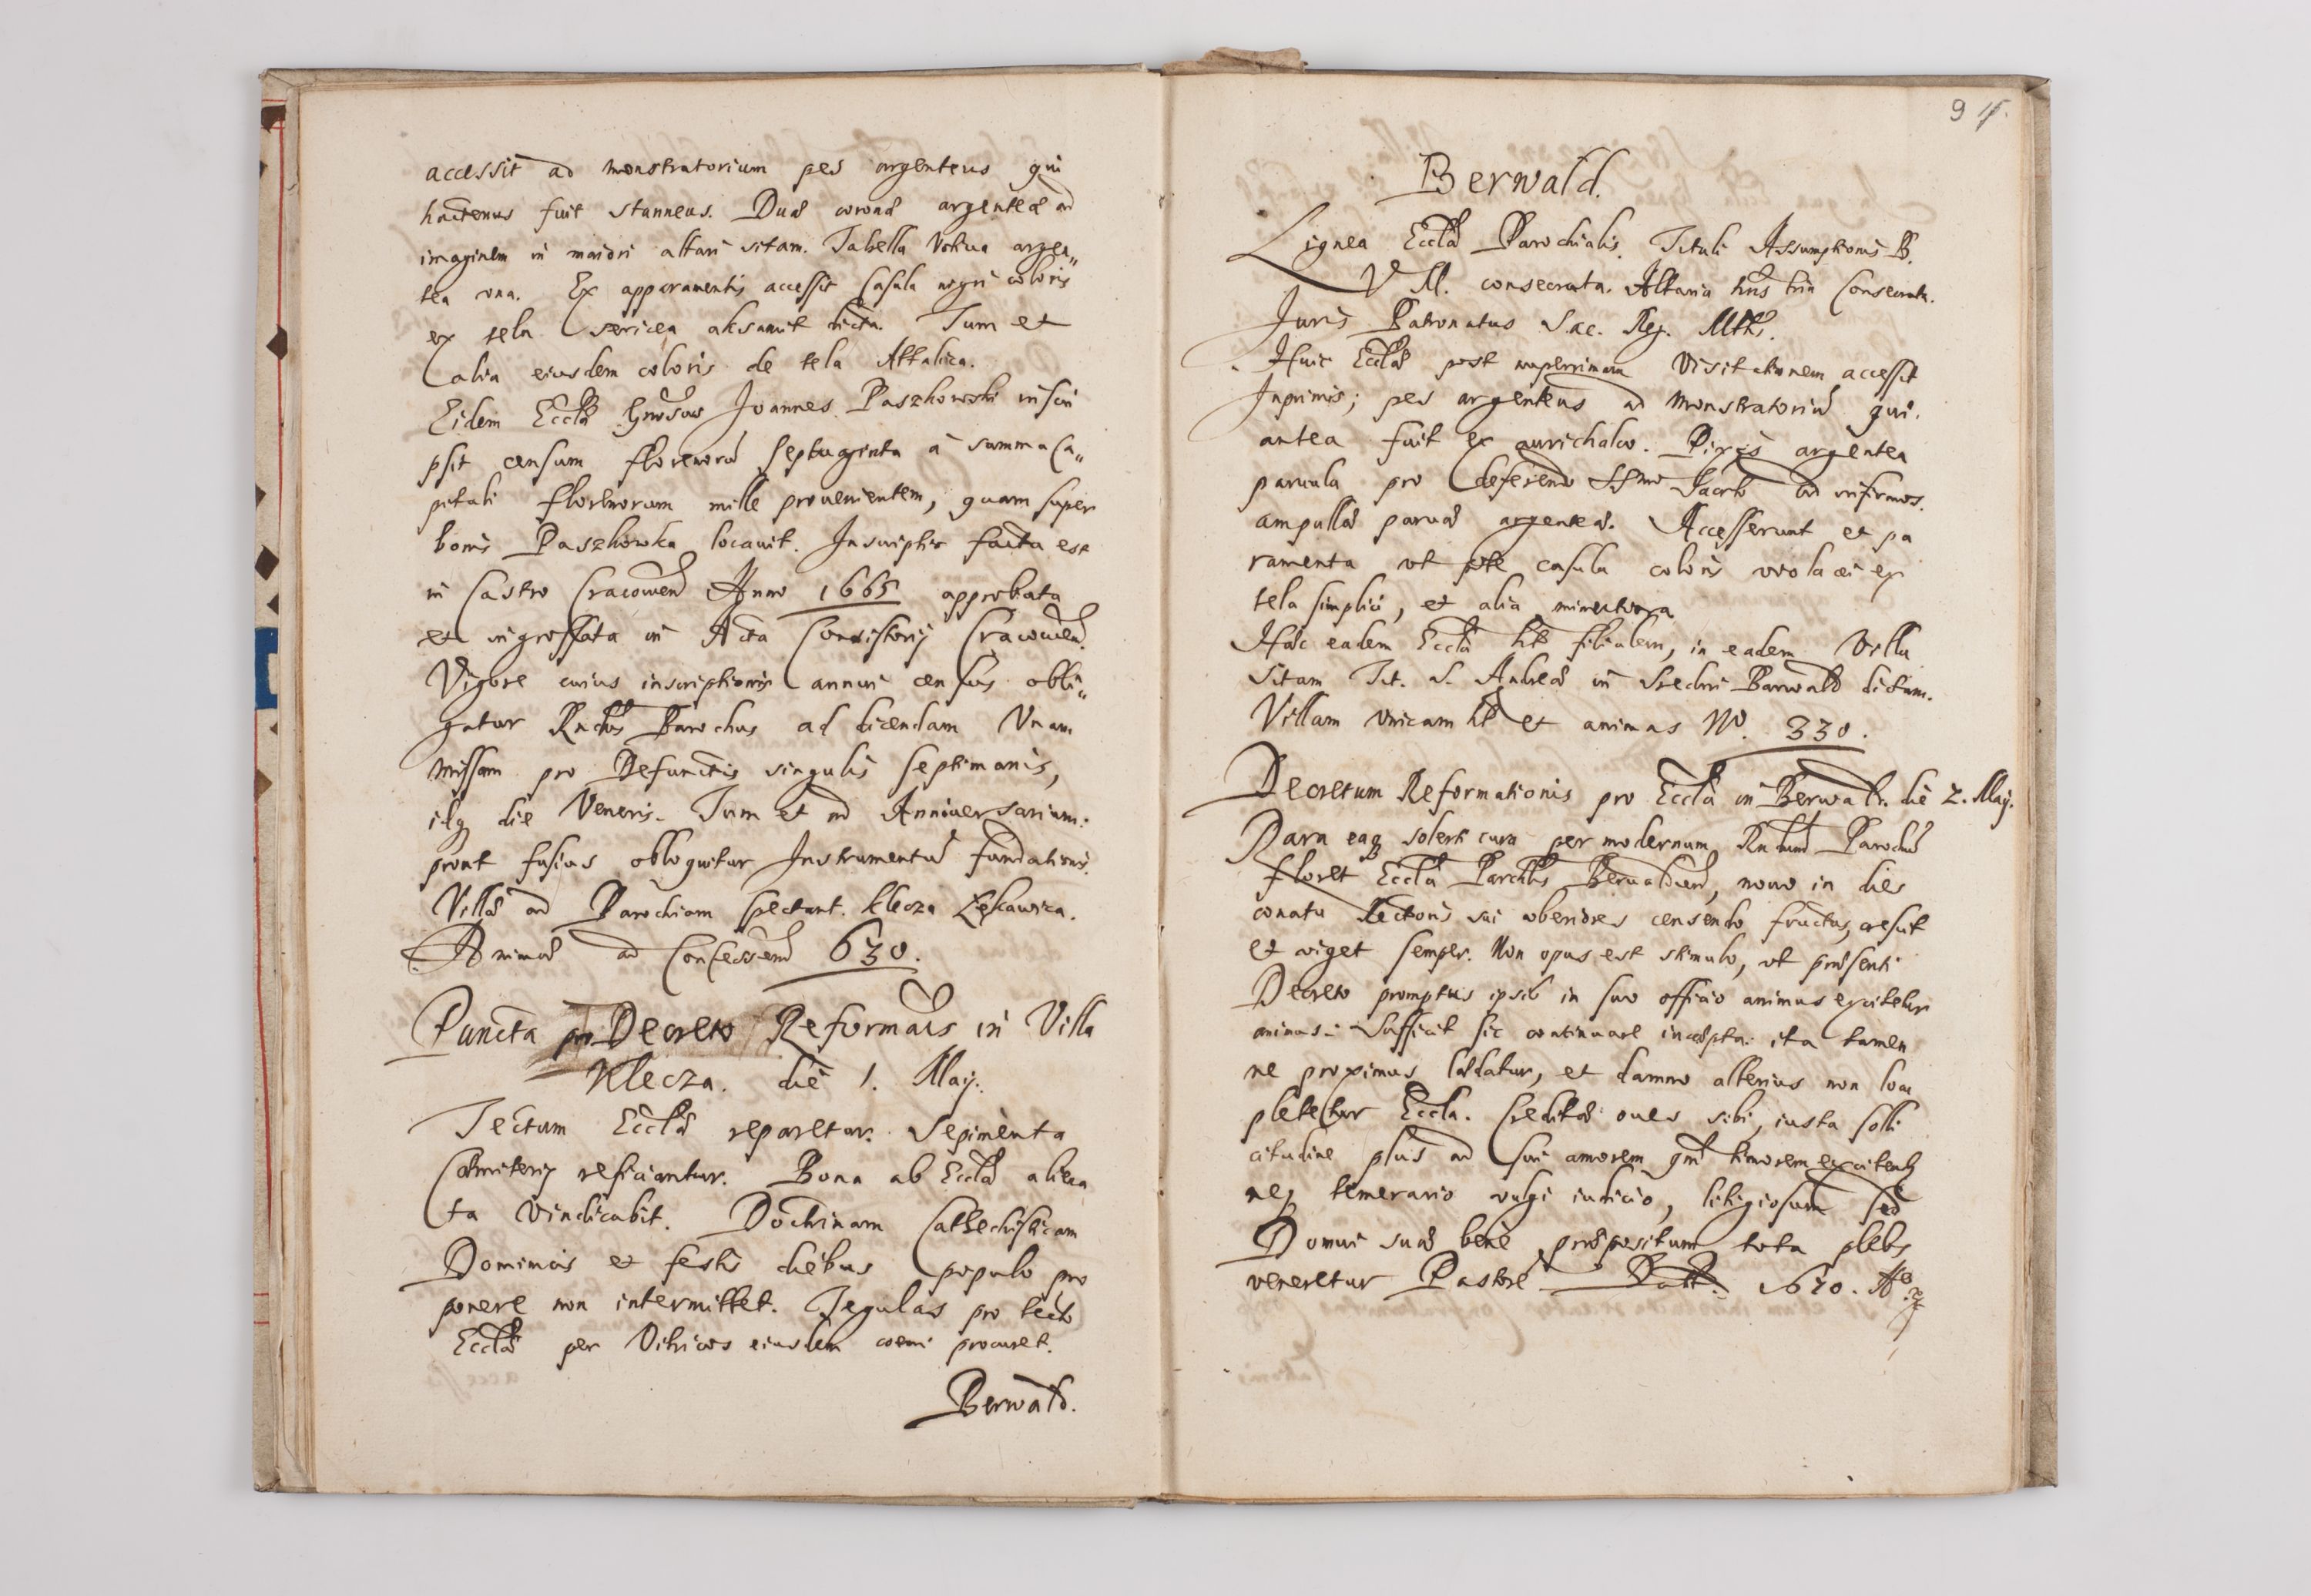 accessit ad monstratorium pes argenteus qui
hactenus fuit stanneus. Duæ coronæ argenteæ ad
imaginem in maiori altari sitam. Tabella Votiua argen„
tea una. Ex apparamentis accessit Casula nigri coloris
ex tela sericea aksamit dicta. Tum et
alia eiusdem coloris de tela Attalica.
Eidem Ecclæ Gnrosus Joannes Paszkowski inscri
psit censum florenorũ septuaginta à summa Ca„
pitali florenorum mille prouenientem, quam super
bonis Paszkowka locauit. Inscriptio facta est
in Castro Cracouien Anno 1665 approbata
et ingrossata in Acta Consistorij Cracouien.
Vigore cuius inscriptionis annui census obli„
gatur Rndus Parochus ad dicendam Vnam
missam pro Defunctis singulis septimanis,
idq die Veneris. Tum et ad Anniuersarium:
prout fusius obloquitur Instrumentũ fundationis.
Villæ ad Parochiam spectant. Klecza Łękawica.
Animæ ad Confessionẽ 630.
Puncta pro Decreto Reformãis in Villa
Klecza. die 1. Maij.
Tectum Ecclæ reparetur. Sepimenta
Cæmiterij reficiantur. Bona ab Eccla aliena
ta Vindicabit. Doctrinam Cathechisticam
Dominicis et festis diebus populo pro
ponere non intermittet. Tegulas pro tecto
Ecclæ per Vitricos eiusdem coemi procuret.
Berwald.
9
Berwald.
Lignea Eccla Parochialis. Tituli Assumptionis B.
V M. consecrata. Altaria hns tria Consecrata.
Juris Patronatus Sac. Reg. Mttis.
Huic Ecclæ post nuperrimam Visitationem accessit
Inprimis; pes argenteus ad monstratoriũ qui
antea fuit ex aurichalco. Pixis argentea
paruula pro deferendo SSmo Sacrto ad infirmos.
ampullæ paruæ argenteæ. Accesserunt et pa
ramenta ut pote casula coloris violacei ex
tela simplici, et alia minutiora
Hæc eadem Eccla ht filialem, in eadem Villa
sitam Tit. S. Andreæ in Sredni Barwałd dictam.
Villam unicam ht et animas No. 330.
Decretum Reformationis pro Eccla in Berwald. die 2. Maij.
Rara eaq solerti cura per modernum Rndum Parochũ
floret Eccla Parchlis Berwaldien, nouo in dies
conatu Rectoris sui uberiores censendo fructus, crescit
et viget semper. Non opus est stimulo, ut præsenti
Decreto promptus ipsius in suo officio animus excitetur
animus. Sufficit sic continuare incæpta: ita tamen
ne proximus lædatur, et damno alterius non locu
pletetur Eccla. Creditæ oues sibi, iusta solli
citudine plus ad sui amorem qm timorem excitentz
neq temerario vulgi iudicio, litigiosum sed
Domui suæ bene præpositum tota plebs
veneretur Pastorẽ 1670. Ao.